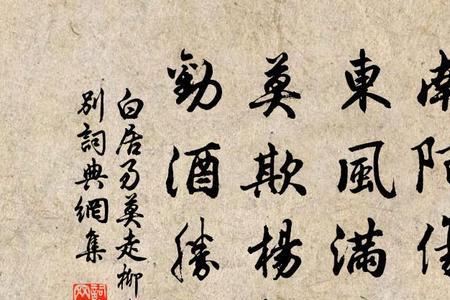 南陌傷
東風滿
莫欺楊
勸酒勝
白居易莫走柳
別詞典網集